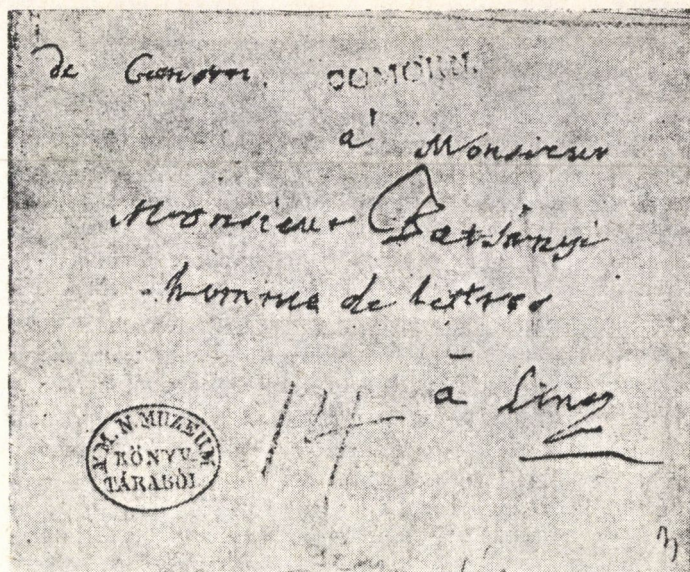 de Comorn. COMORN.
a' Monsieur
Monsieur Batsányi
homme de lettres
à Linz
14
A M. N. MUZEUM
KÖNYV
TÁRABÓL